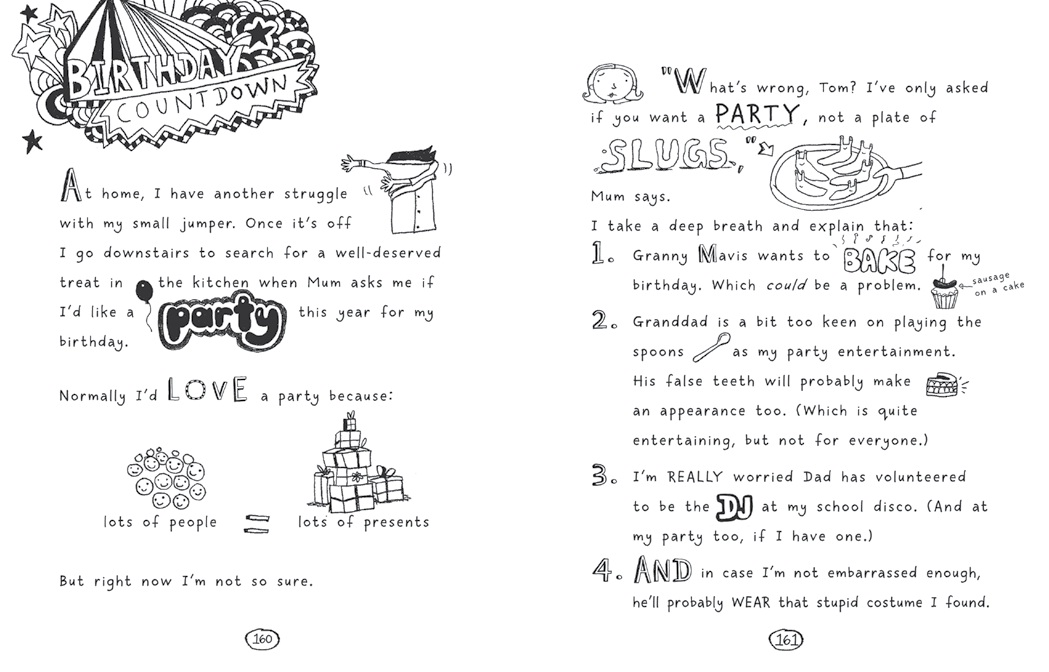 BIRTHDAY
COUNTDOWN
At home, I have another struggle
with my small jumper. Once it's off
I go downstairs to search for a well-deserved
treat in the kitchen when Mum asks me if
I'd like a party this year for my
birthday.
Normally I'd LOVE a party because:
lots of people = lots of presents
But right now I'm not so sure.
160
"What's wrong, Tom? I've only asked
if you want a PARTY, not a plate of
SLUGS,"
Mum says.
I take a deep breath and explain that:
1. Granny Mavis wants to BAKE for my
birthday. Which could be a problem.
sausage
on a cake
2. Granddad is a bit too keen on playing the
spoons as my party entertainment.
His false teeth will probably make
an appearance too. (Which is quite
entertaining, but not for everyone.)
3. I'm REALLY worried Dad has volunteered
to be the DJ at my school disco. (And at
my party too, if I have one.)
4. AND in case I'm not embarrassed enough,
he'll probably WEAR that stupid costume I found.
161